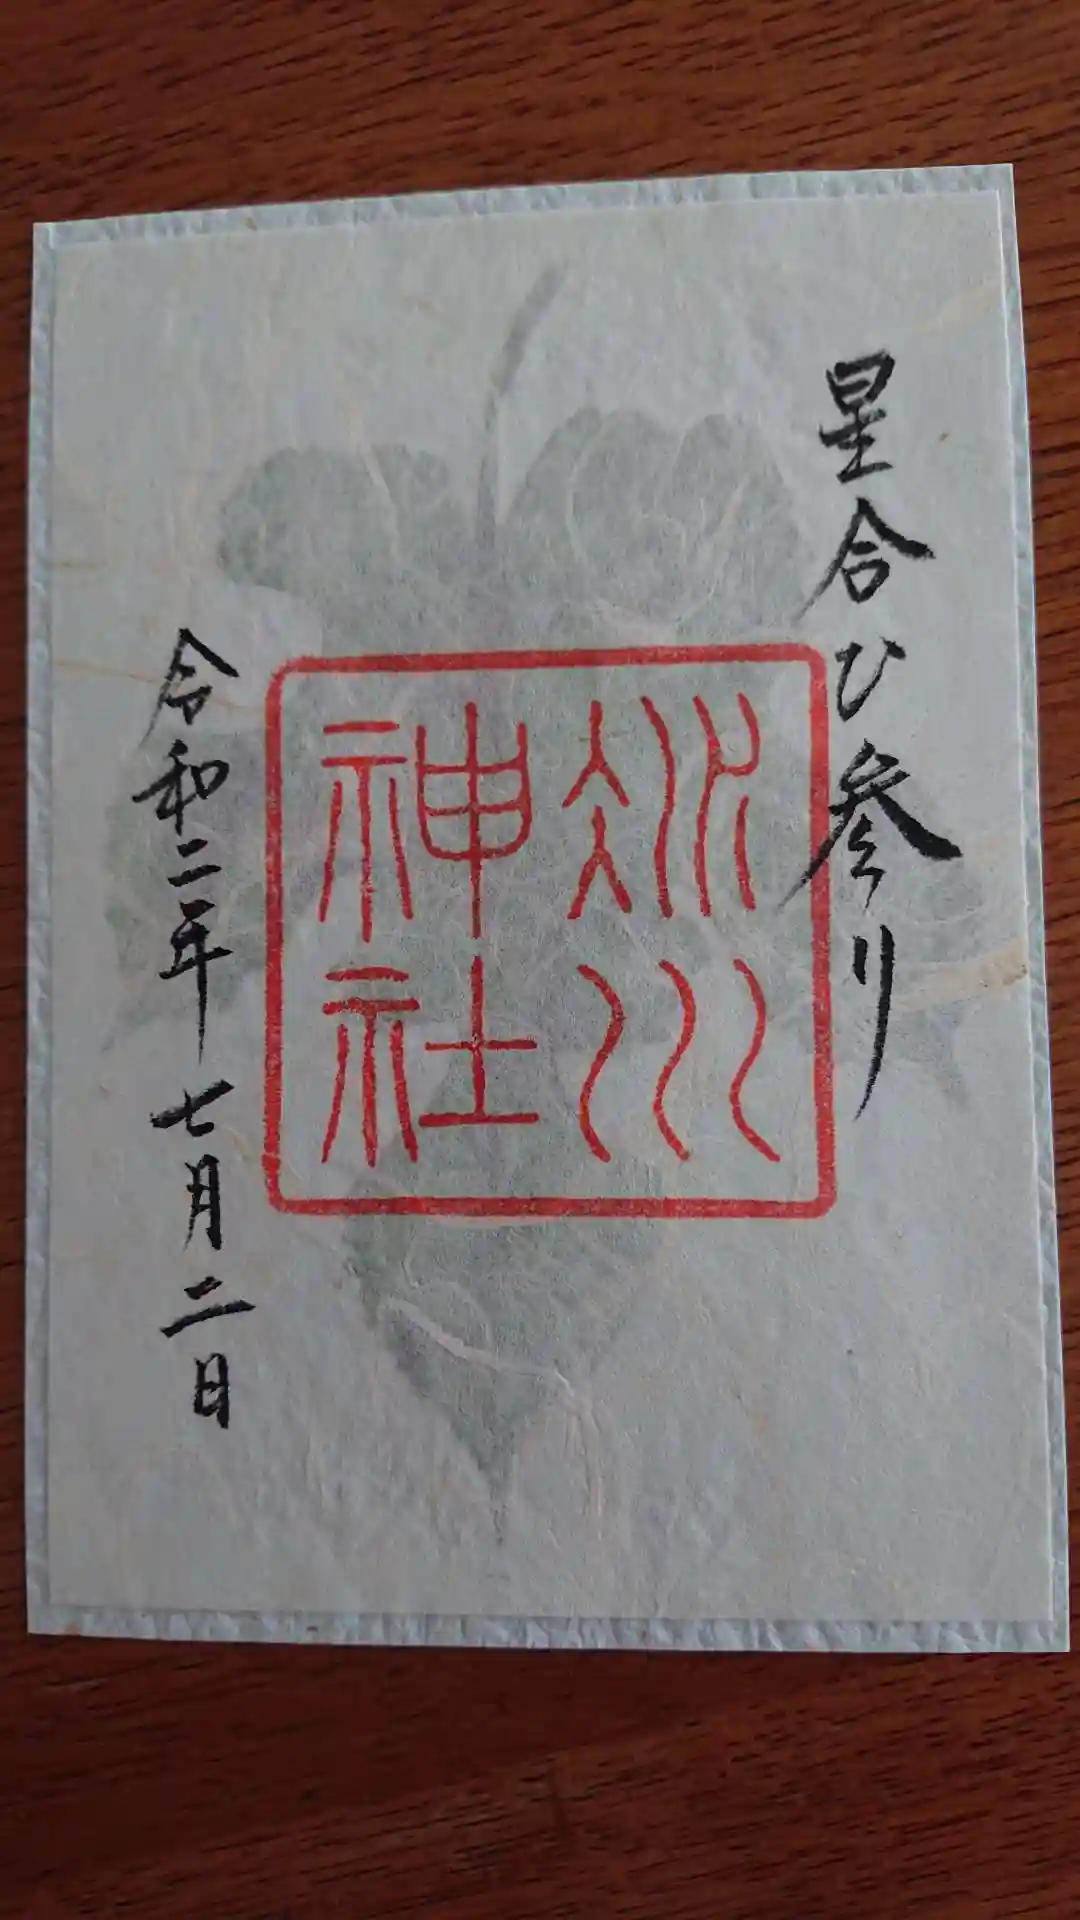 星合ひ参り
冰川
神社
令和二年七月二日